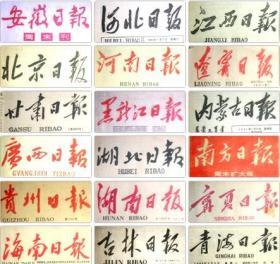 安徽日報
周末刊
河北日報
HEBEI RIBAO
江西日報
JIANGXI RIBAO
北京日报
河南日報
HENAN RIBAO
遼寧日報
LIAONING RIBAO
甘肃日報
GANSU RIBAO
黑龙江日報
内蒙古日報
廣西日報
GVANGJSIH YIZBAO
湖北日報
HUBEI RIBAO
南方日報
周末扩大版
貴州日報
GUIZHOU RIBAO
湖南日報
HUNAN RIBAO
寧夏日報
NINGXIA RIBAO
海南日報
HAINAN RIBAO
吉林日報
JILIN RIBAO
青海日報
QINGHAI RIBAO